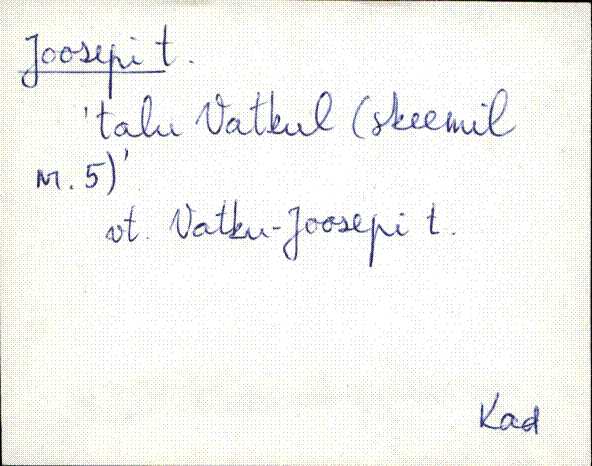 Joosepi t.
'talu Vatkul (skeemil
nr. 5)'
vt. Vatku-Joosepi t.
Kad